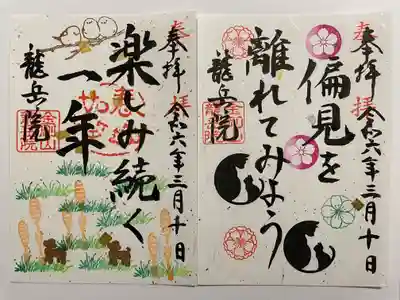 奉拝
令和六年三月十日
楽しみ続く
一年
龍岳院
奉拝
令和六年三月十日
偏見を
離れてみよう
龍岳院